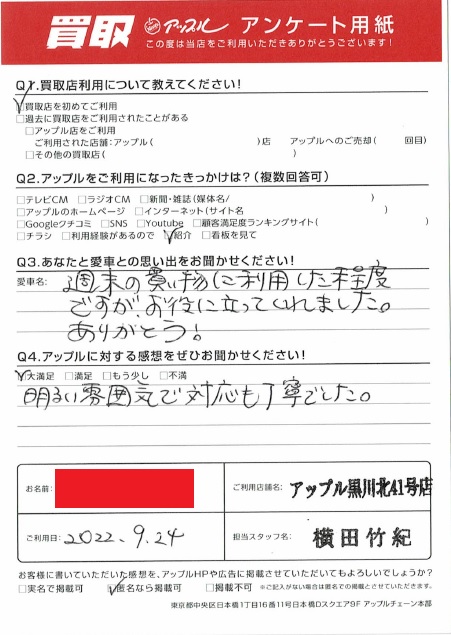 買取 アップル アンケート用紙
この度は当店をご利用いただきありがとうございます!
Q1.買取店利用について教えてください!
☑買取店を初めてご利用
□過去に買取店をご利用されたことがある
□アップル店をご利用
ご利用された店舗:アップル( )店 アップルへのご売却( 回目)
□その他の買取店( )
Q2.アップルをご利用になったきっかけは?(複数回答可)
□テレビCM □ラジオCM □新聞・雑誌(媒体名/ )
□アップルのホームページ □インターネット(サイト名 )
□Googleクチコミ □SNS □Youtube □顧客満足度ランキングサイト( )
□チラシ □利用経験があるので ☑紹介 □看板を見て
Q3.あなたと愛車との思い出をお聞かせください!
愛車名: 週末の買い物に利用した程度
ですが、お役に立ってくれました。
ありがとう!
Q4.アップルに対する感想をぜひお聞かせください!
☑大満足 □満足 □もう少し □不満
明るい雰囲気で対応も丁寧でした。
お名前: ご利用店舗名: アップル黒川北41号店
ご利用日: 2022.9.24 担当スタッフ名: 横田竹紀
お客様に書いていただいた感想を、アップルHPや広告に掲載させていただいてもよろしいでしょうか?
□実名で掲載可 ☑匿名なら掲載可 □掲載不可 ※ご記入がない場合は匿名での掲載とさせていただきます。
東京都中央区日本橋1丁目16番11号日本橋Dスクエア9F アップルチェーン本部